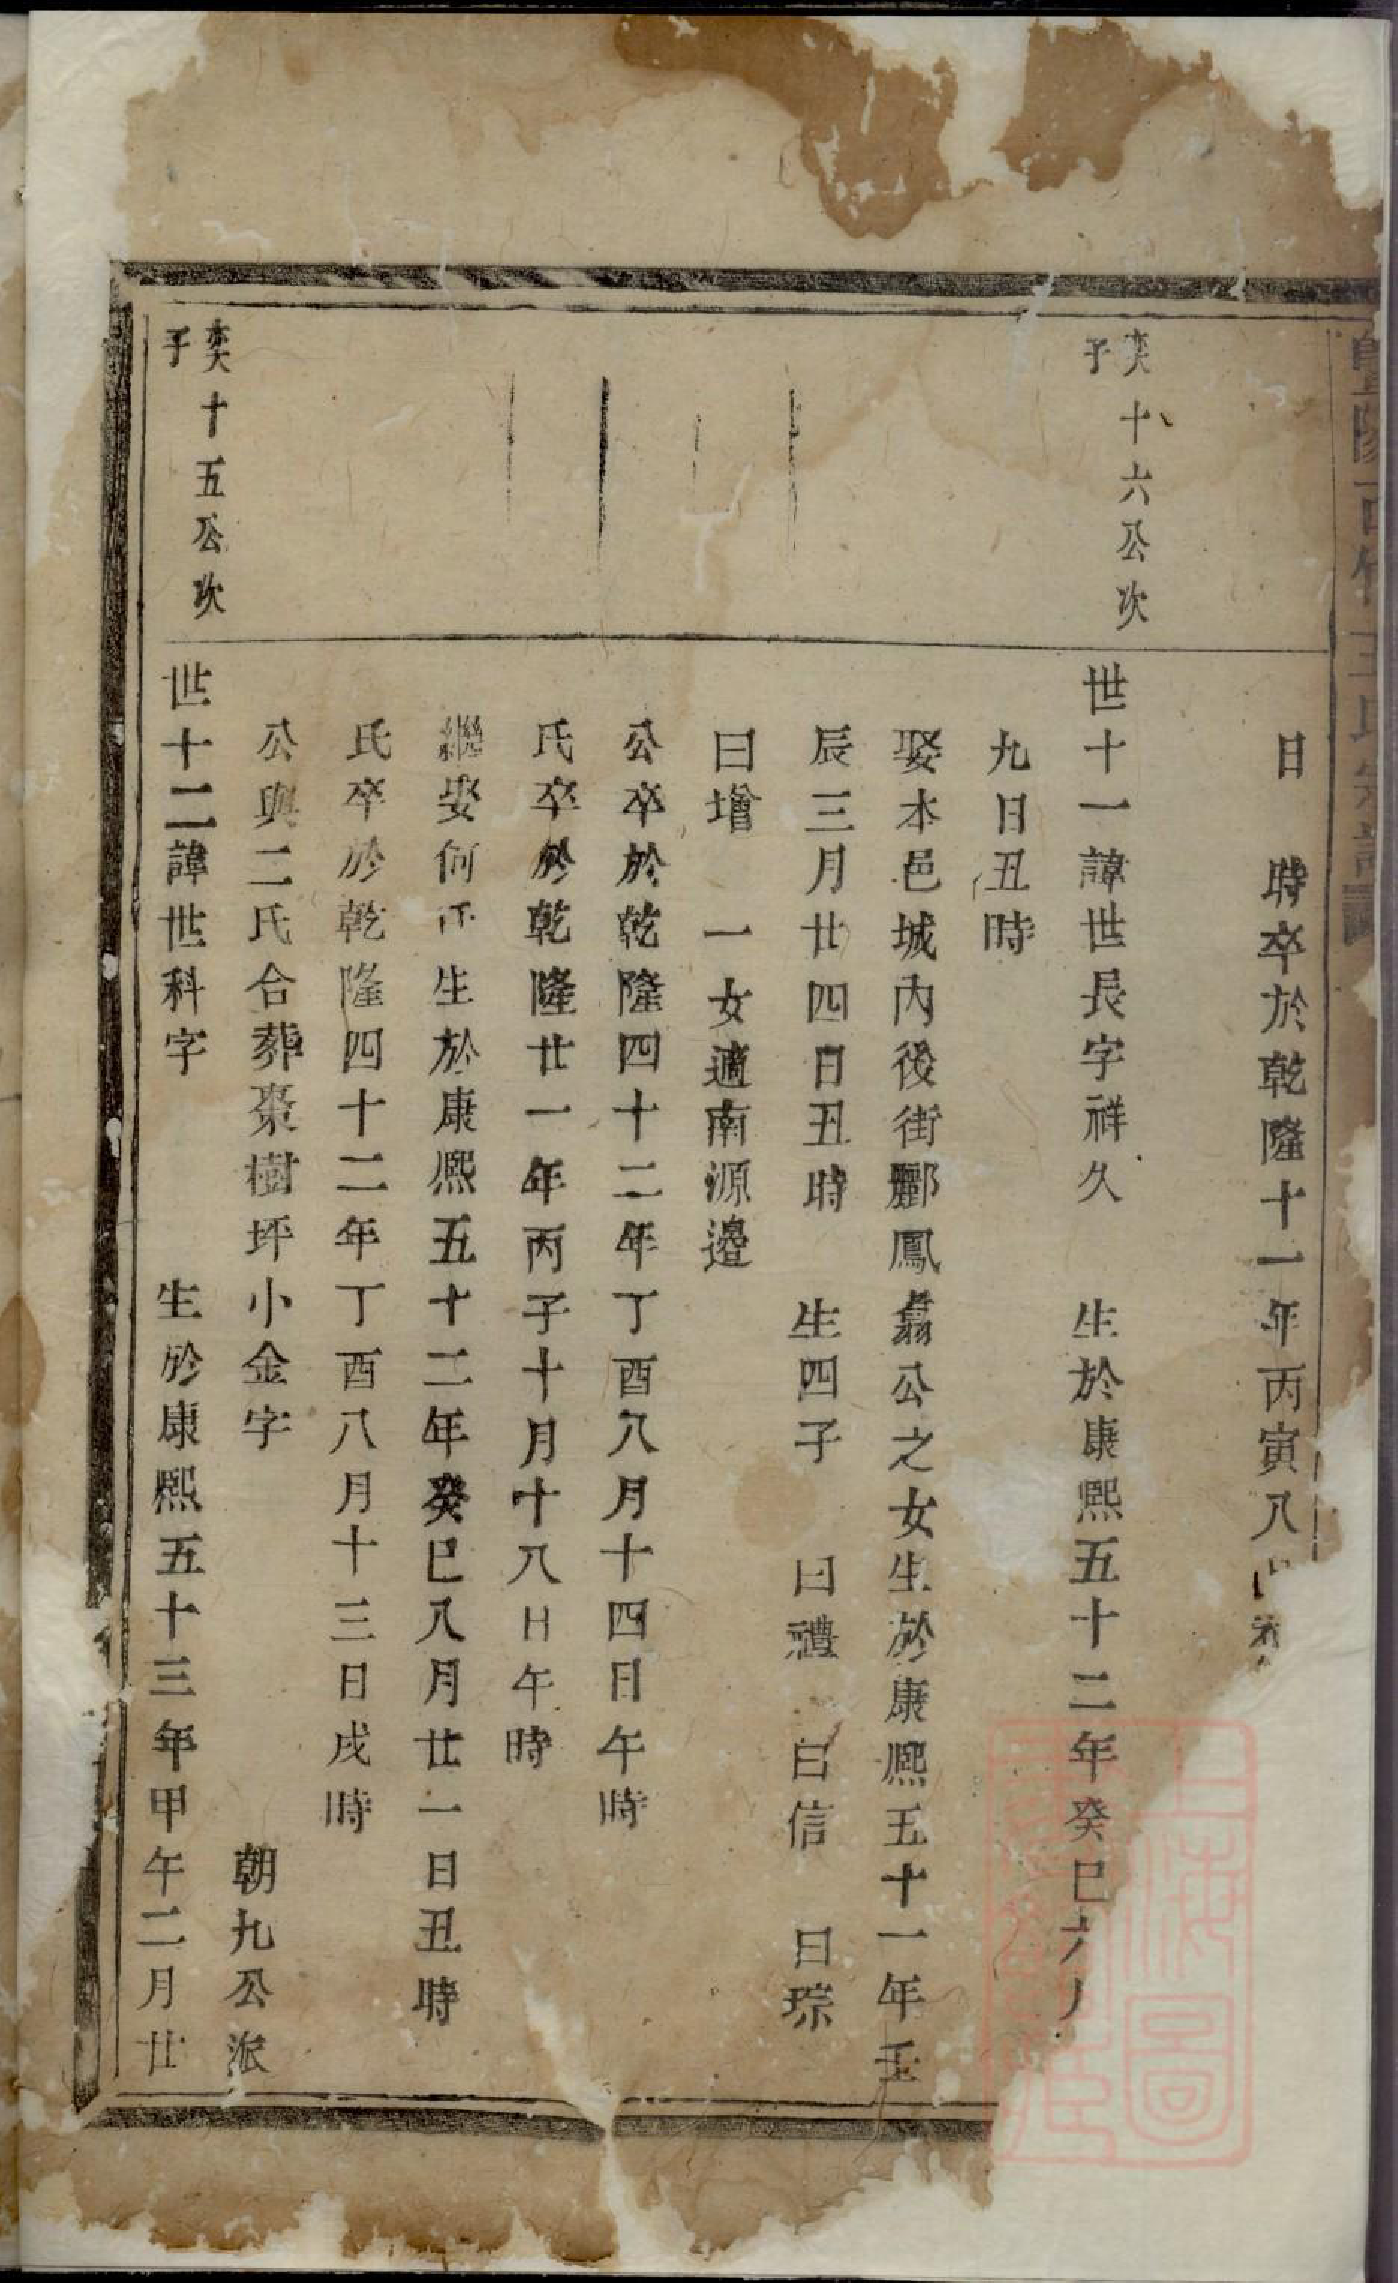 日　時卒於乾隆十一年丙寅八
奕十六公次子
世十一諱世長字祥久　生於康熙五十二年癸巳六月
九日丑時
娶本邑城內後街酈鳳翥公之女生於康熙五十一年壬
辰三月廿四日丑時　生四子　曰禮　曰信　曰琮
曰增　一女適南源邉
公卒於乾隆四十二年丁酉八月十四日午時
氏卒於乾隆廿一年丙子十月十八日午時
繼娶何氏生於康熙五十二年癸巳八月廿一日丑時
氏卒於乾隆四十二年丁酉八月十三日戌時
公與二氏合葬棗樹坪小金字　朝九公派
奕十五公次子
世十二諱世科字　生於康熙五十三年甲午二月廿